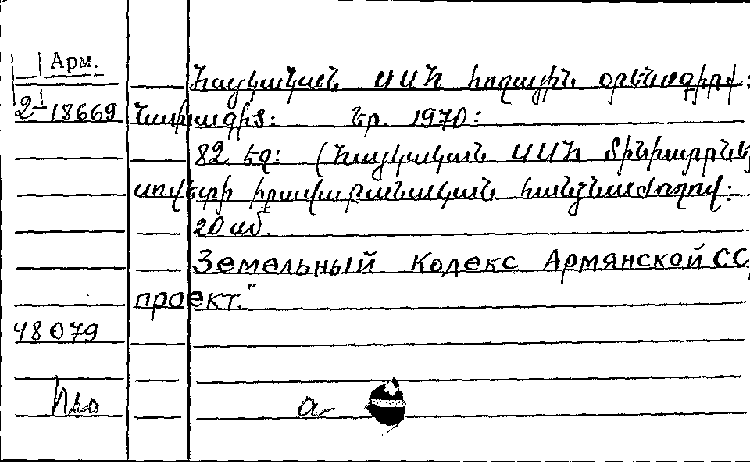 Арм.
Հայկական ՍՍՀ հողային օրենսգիրք:
2-18669 Նախագիծ: Եր. 1970:
82 եզ: (Հայկական ՍՍՀ մինիստրնե
սովետի իրավաբանական հանձնաժողով.
20 սմ.
Земельный кодекс Армянской СС
проект."
48079
a-